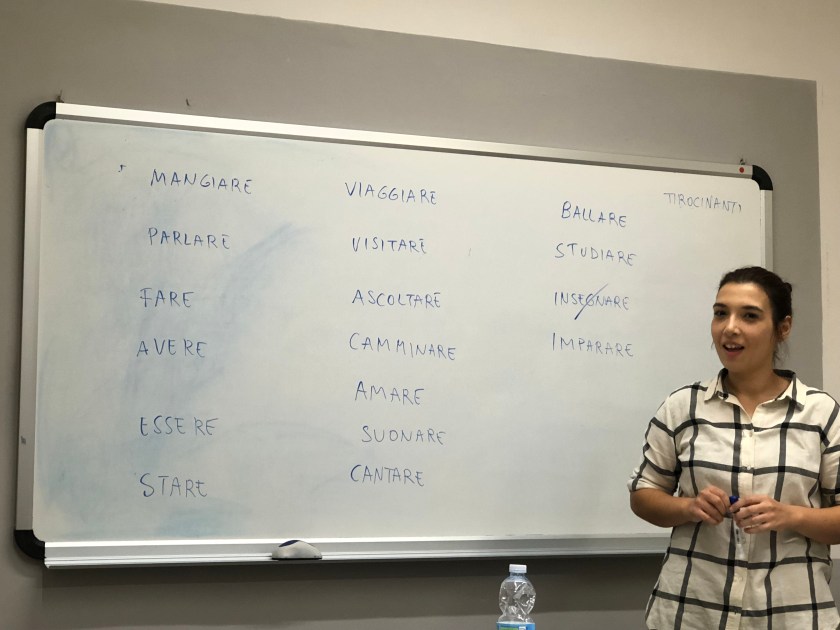 MANGIARE
PARLARE
FARE
AVERE
ESSERE
STARE
VIAGGIARE
VISITARE
ASCOLTARE
CAMMINARE
AMARE
SUONARE
CANTARE
BALLARE
STUDIARE
INSEGNARE
IMPARARE
TIROCINANTI